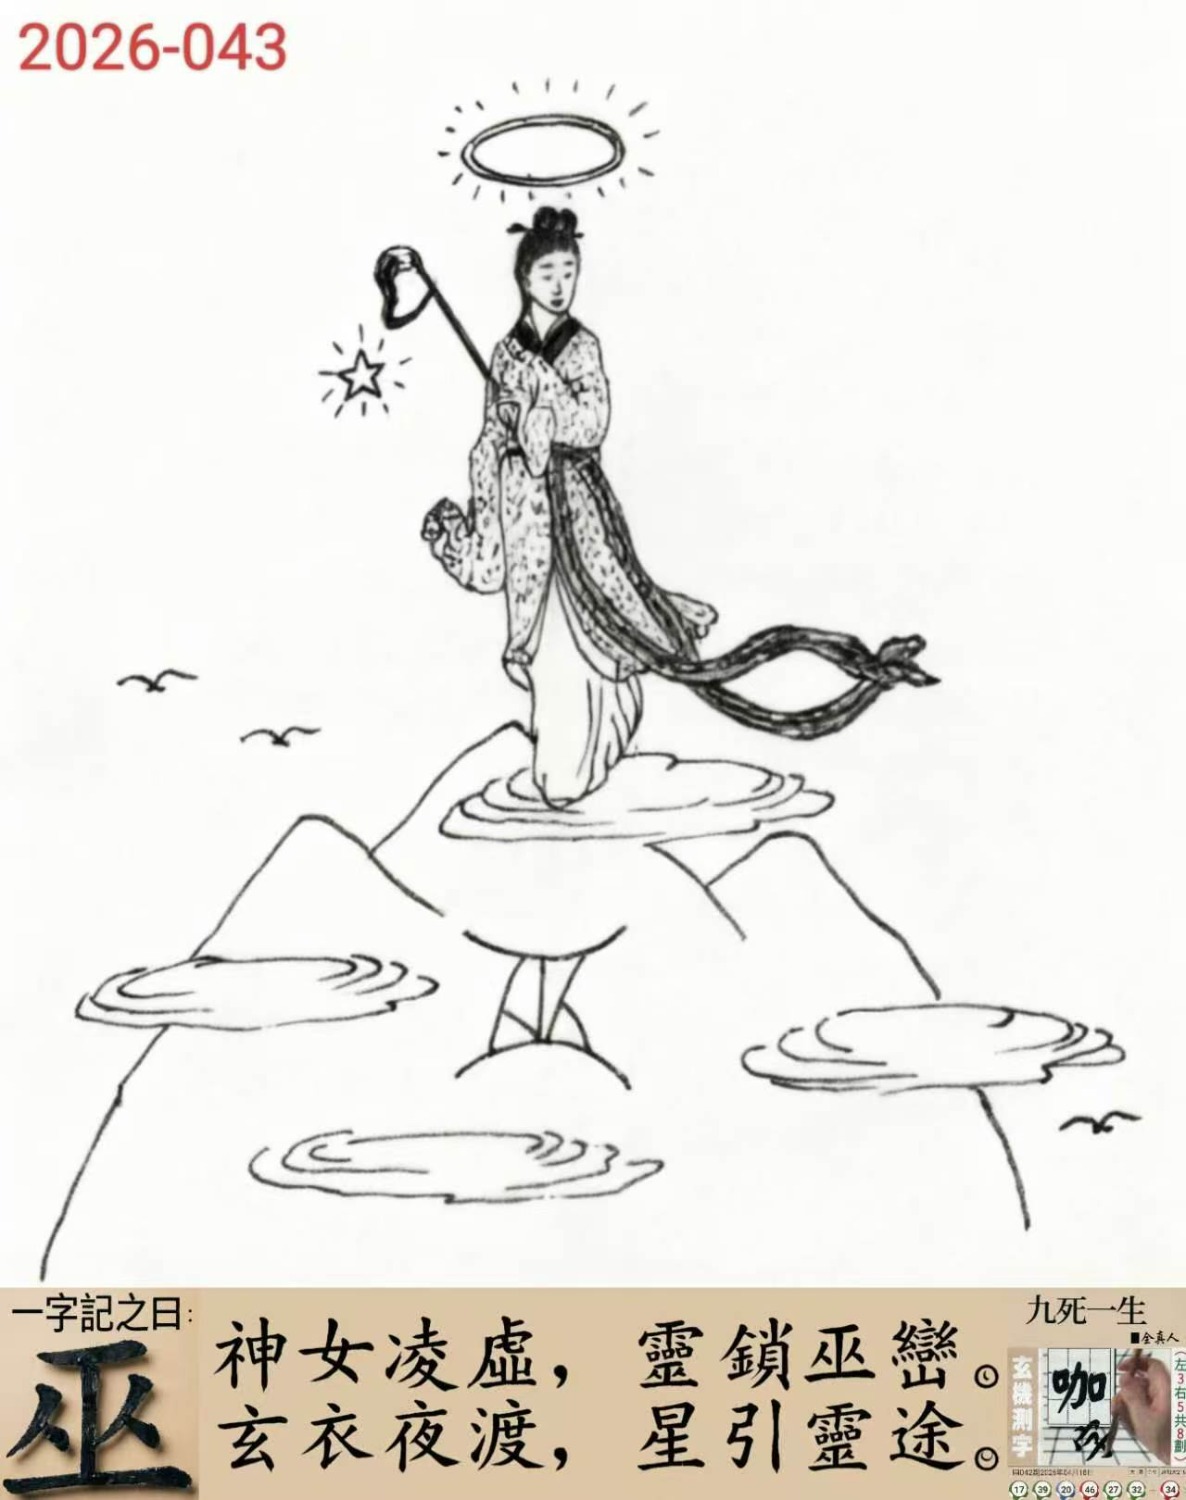 2026-043
一字記之曰:
巫
神女凌虛，靈鎖巫巒。
玄衣夜渡，星引靈途。
九死一生
■全真人
玄機測字
咖
(左3右5共8劃)
17 39 20 46 27 32 34